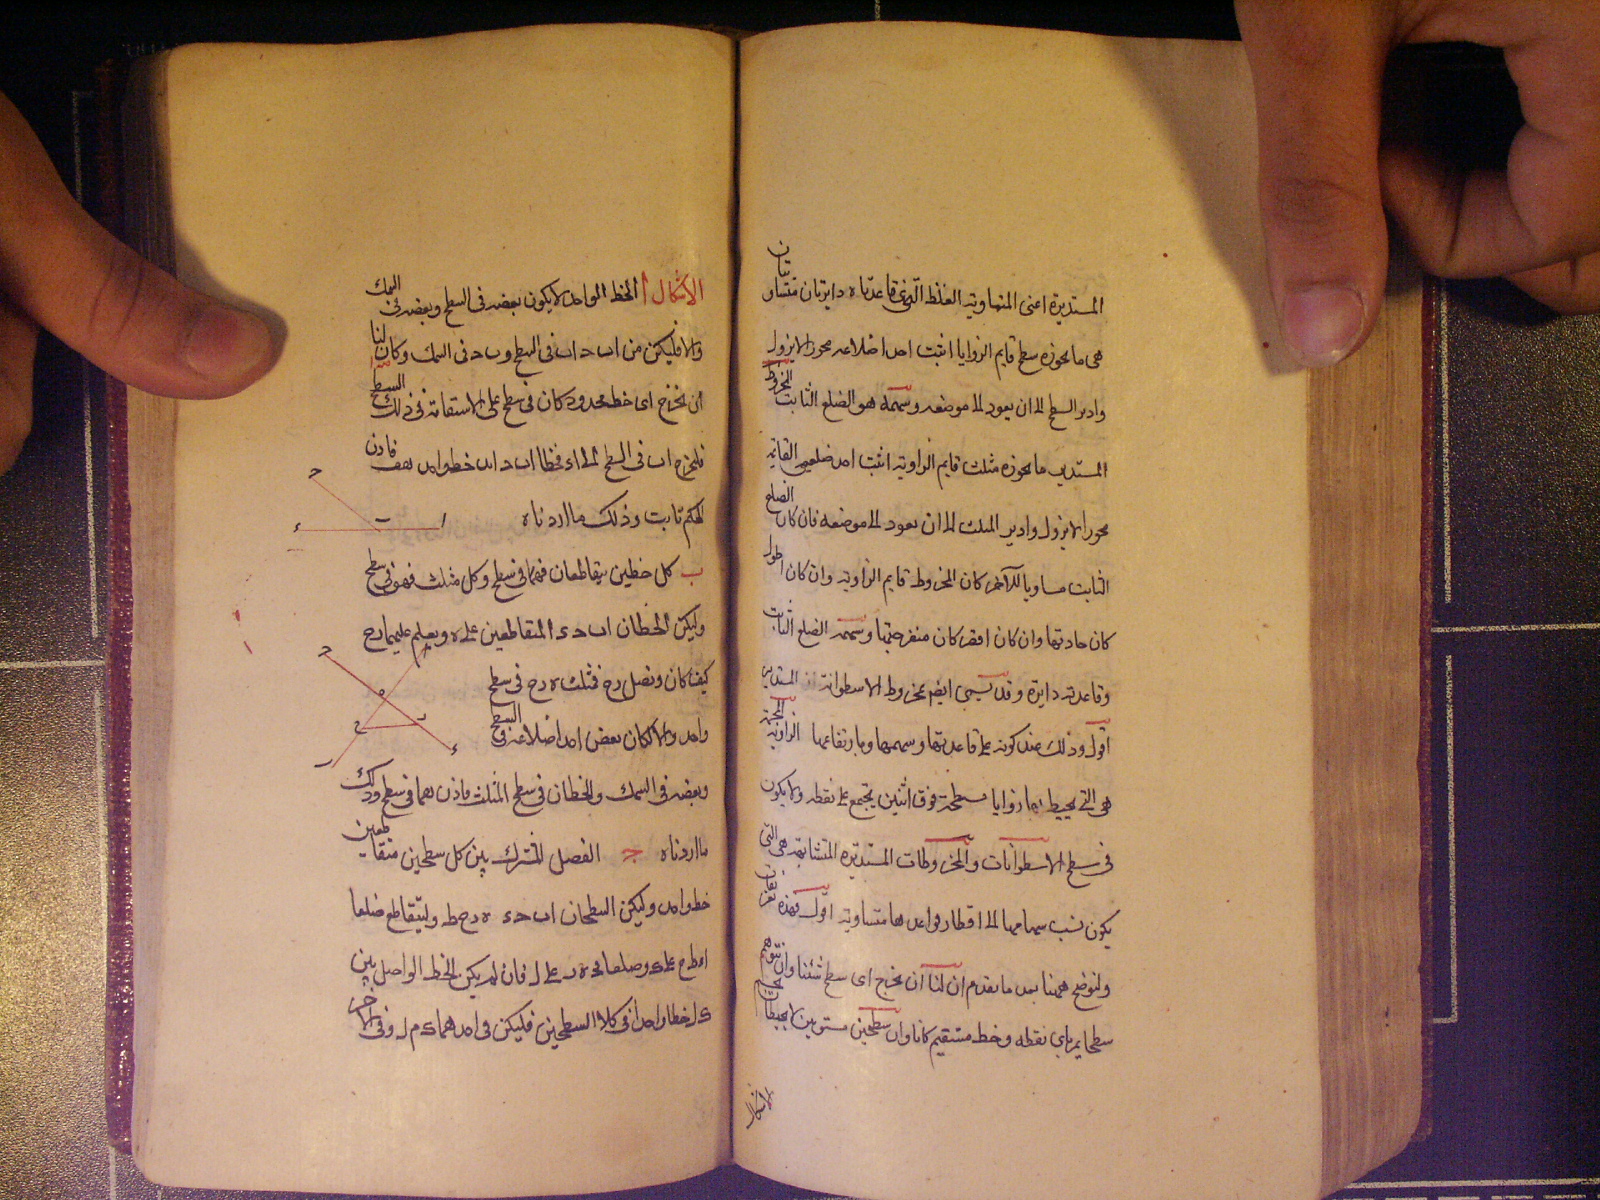 المستديرة اعنى المتساوية الغلظ التى قاعدتاه دايرتان متساويتان
هى ما يحوزه سطح قايم الزوايا اثبت احد اضلاعه محورا لا يزول
وادير السطح الى ان يعود الى موضعه وسهمه هو الضلع الثابت المخروط
المستدير ما يحوزه مثلث قايم الزاوية اثبت احد ضلعيى القايمة
محورا لا يزول وادير المثلث الى ان يعود الى موضعه فان كان الضلع
الثابت مساويا للآخر كان المخروط قايم الزاوية وان كان اطول
كان حادتها وان كان اقصر كان منفرجتها وسهمه الضلع الثابت
وقاعدته دايرة وقد يسمى ايضا مخروط الاسطوانة المستديرة
اقول وذلك عند كونه على قاعدتها وسهمها وبارتفاعها الزاوية المجسمة
هى التى يحيط بها زوايا مسطحة فوق اثنين يجتمع على نقطه ولا يكون
فى سطح الاسطوانات والمخروطات المستديرة المتشابهة هى التى
يكون نسب سهامها الى اقطار قواعدها متساوية اقول فهذه تعريفات
ولنوضح ههنا بعد ما تقدم ان لنا ان نخرج اى سطح شئنا وان نتوهم
سطحا يمر باى نقطه وخط مستقيم كانا وان سطحين مستويين لا يحيطان بمجسم
الاشكال
الاشكال ا الخط الواحد لا يكون بعضه فى السطح وبعضه فى السمك
والا فليكن من ا ب ح ا ب فى السطح و ب ح فى السمك وكان لنا
ان نخرج اى خط محدود كان فى سطح على الاستقامة فى ذلك السطح
فلنخرج ا ب فى السطح الى ء فخطا ا ب ح ا ب ء خط واحد هف فاذن
الحكم ثابت وذلك ما اردناه
ب كل خطين يتقاطعان فهما فى سطح وكل مثلث فهو فى سطح
وليكن الخطان ا ب ح ء المتقاطعين على ه ونعلم عليهما ر ح
كيف كان ونصل ر ح فمثلث ه ر ح فى سطح
واحد والا لكان بعض احد اضلاعه فى السطح
وبعضه فى السمك والخطان فى سطح المثلث فاذن هما فى سطح وذلك
ما اردناه ح الفصل المشترك بين كل سطحين متقاطعين
خط واحد وليكن السطحان ا ب ح ء ه ر ح ط وليتقاطع ضلعا
على ك وضلعا على ل فان لم يكن الخط الواصل بين
ك ل خطا واحدا فى كلا السطحين فليكن فى احدهما ك م ل وفى الآخر